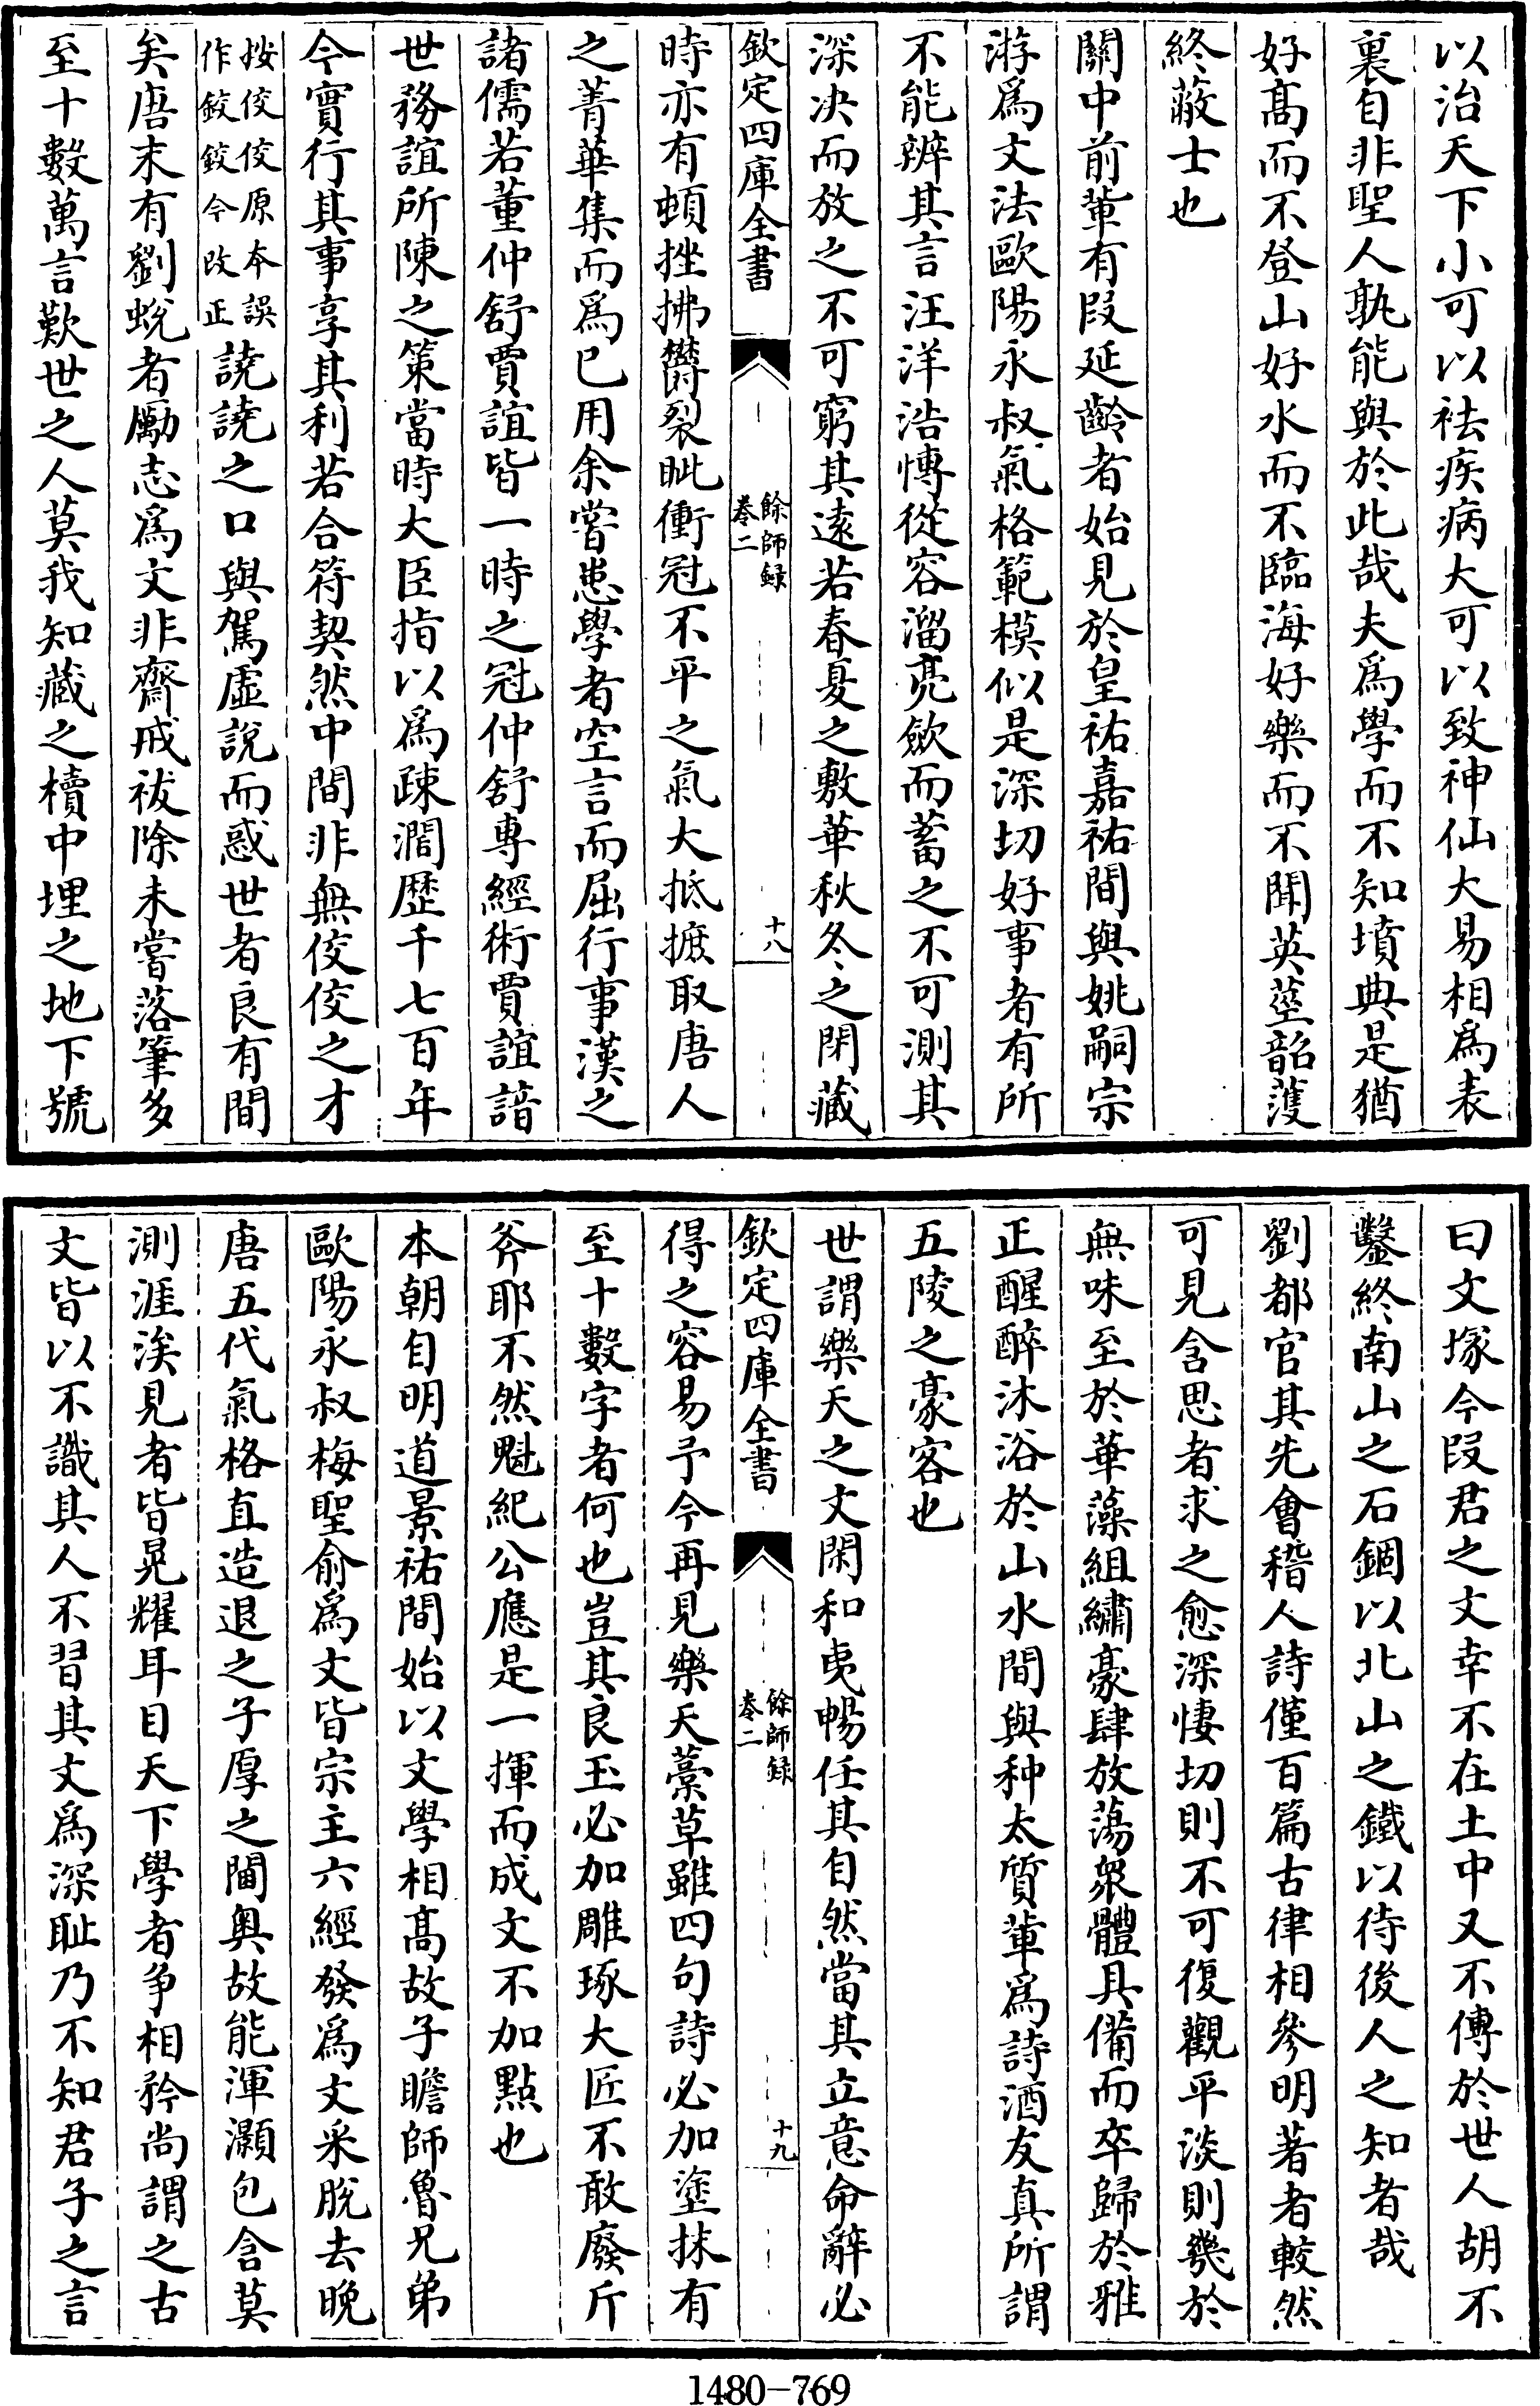 以治天下小可以祛疾病大可以致神仙大易相爲表
裏自非聖人孰能與於此哉夫爲學而不知墳典是猶
好髙而不登山好水而不臨海好樂而不聞英莖韶頀
終蔽士也
關中前輩有段延齡者始見於皇祐嘉祐間與姚嗣宗
游爲文法歐陽永叔氣格範模似是深切好事者有所
不能辨其言汪洋浩愽從容溜亮歛而蓄之不可測其
深決而放之不可窮其逺若春夏之敷華秋冬之閉藏
欽定四庫全書
餘師録
卷二
十八
時亦有頓挫拂欝裂眦衝冠不平之氣大抵摭取唐人
之菁華集而爲已用余嘗患學者空言而屈行事漢之
諸儒若董仲舒賈誼皆一時之冠仲舒專經術賈誼諳
世務誼所陳之策當時大臣指以爲疎濶歴千七百年
今實行其事享其利若合符契然中間非無佼佼之才
按佼佼原本誤
作鉸鉸今改正
譊譊之口與駕虚說而惑世者良有間
矣唐末有劉蛻者勵志爲文非齋戒祓除未嘗落筆多
至十數萬言歎世之人莫我知藏之櫝中埋之地下號
曰文塚今段君之文幸不在土中又不傳於世人胡不
鑿終南山之石錮以北山之鐵以待後人之知者哉
劉都官其先㑹稽人詩僅百篇古律相參明著者較然
可見含思者求之愈深悽切則不可復觀平淡則幾於
無味至於華藻組繡豪肆放蕩衆體具備而卒歸於雅
正醒醉沐浴於山水間與种太質輩爲詩酒友真所謂
五陵之豪客也
世謂樂天之文閑和夷暢任其自然當其立意命辭必
欽定四庫全書
餘師録
卷二
十九
得之容易予今再見樂天藁草雖四句詩必加塗抹有
至十數字者何也豈其良玉必加雕琢大匠不敢廢斤
斧耶不然魁紀公應是一揮而成文不加點也
本朝自明道景祐間始以文學相髙故子瞻師魯兄弟
歐陽永叔梅聖俞爲文皆宗主六經發爲文采脫去晚
唐五代氣格直造退之子厚之閫奥故能渾灝包含莫
測涯涘見者皆晃耀耳目天下學者爭相矜尚謂之古
文皆以不識其人不習其文爲深耻乃不知君子之言
1480-769